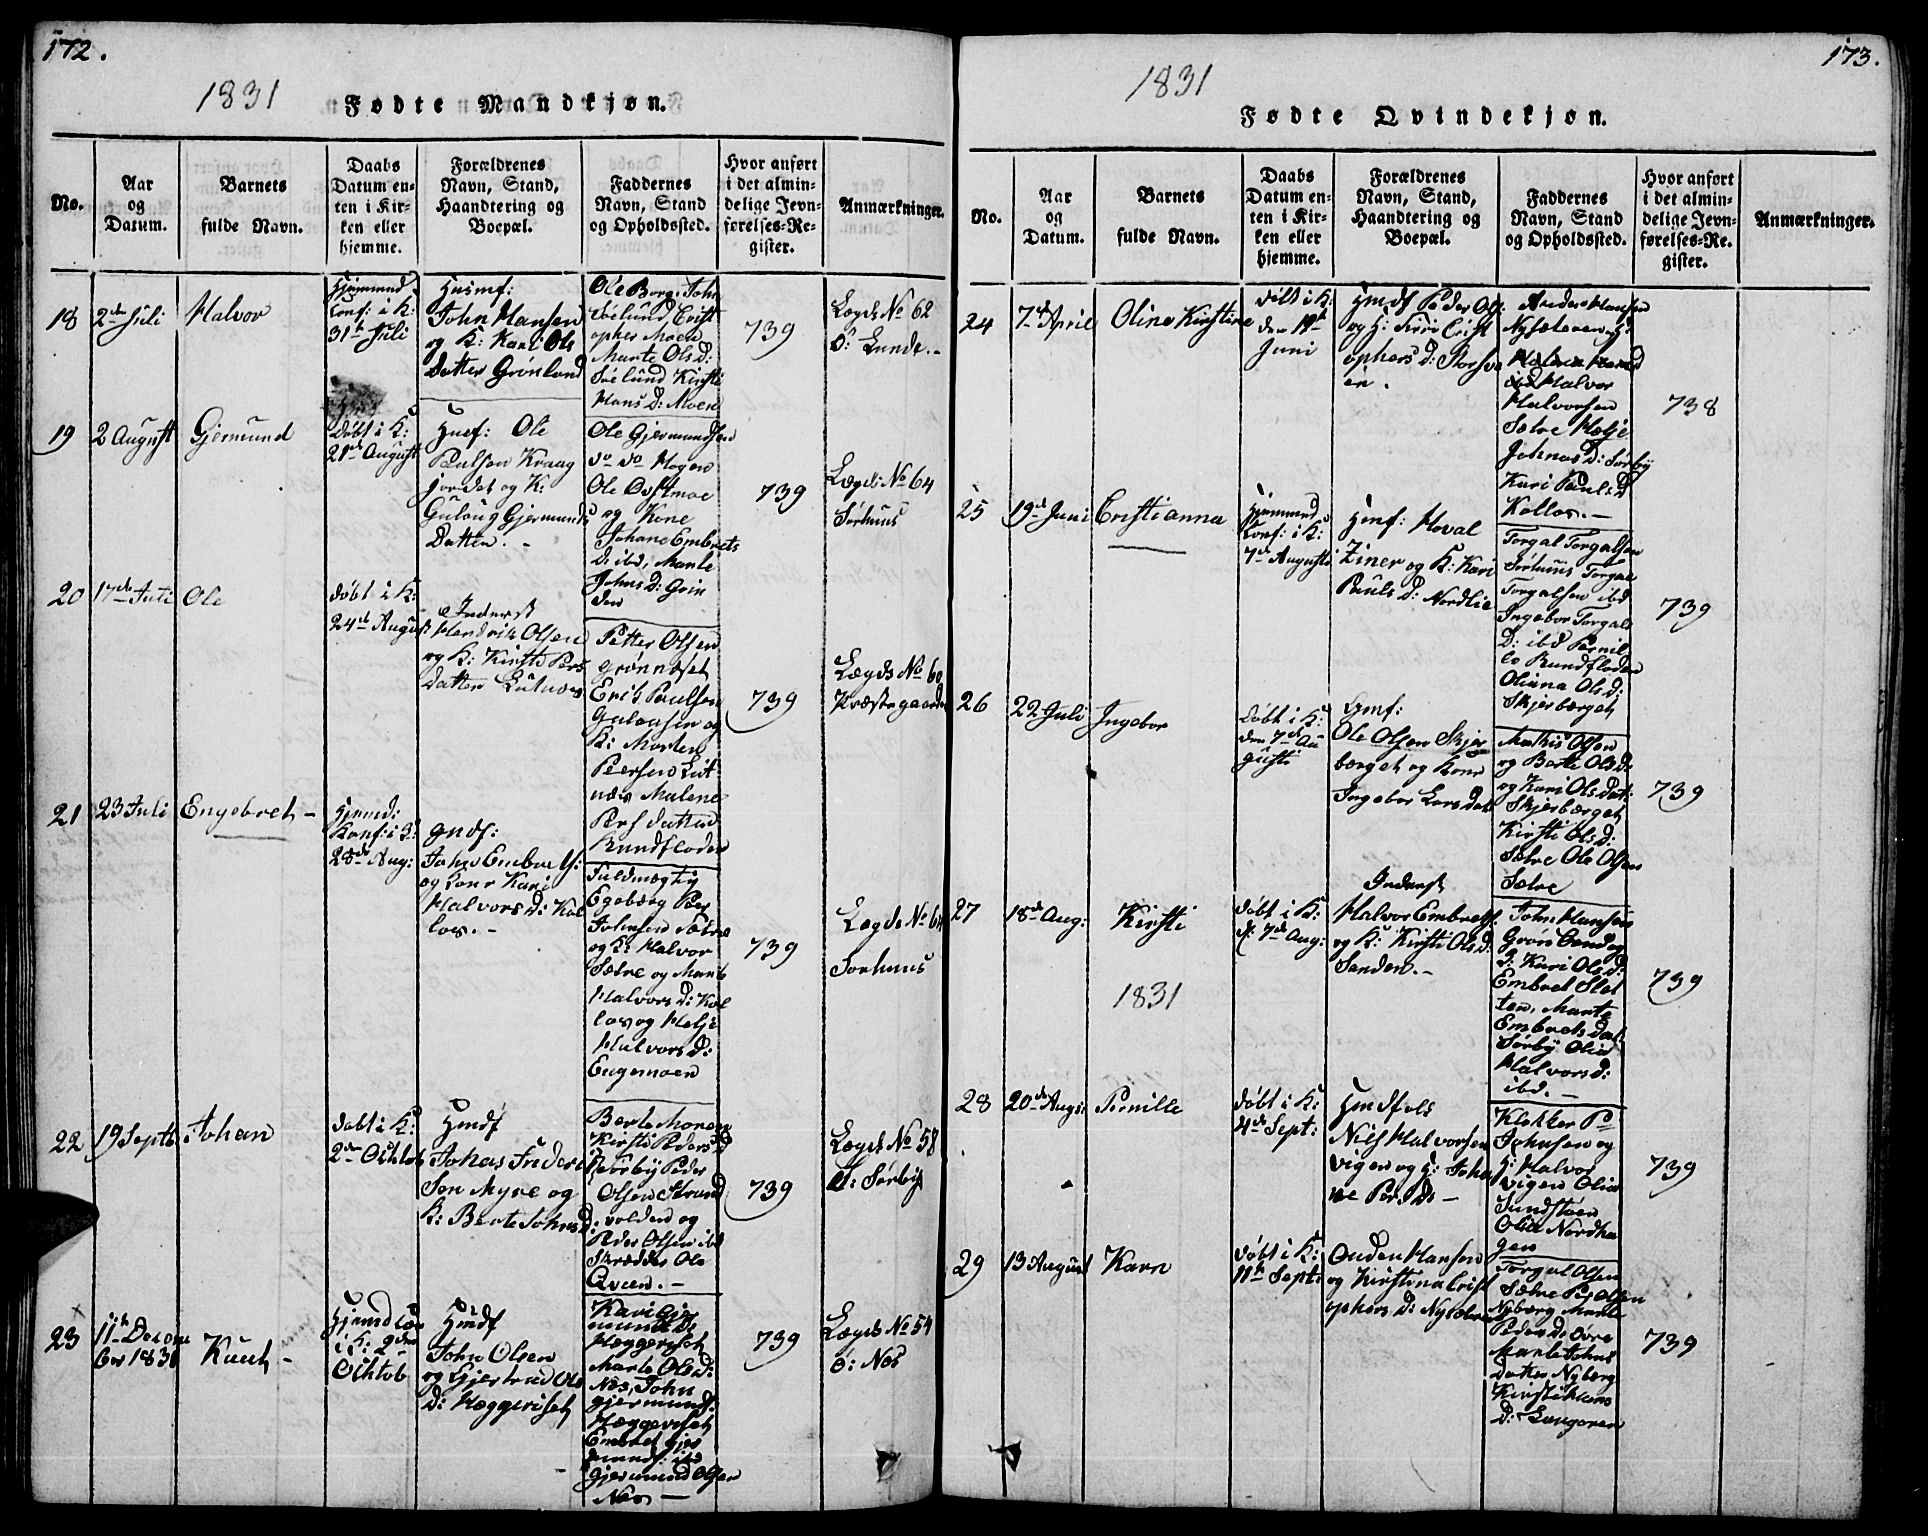 172.
1831
Fødte Mandkjøn.
No.
Aar
og
Datum.
Barnets
fulde Navn.
Daabs
Datum en-
ten i Kir-
ken eller
hjemme.
Forældrenes
Navn, Stand,
Haandtering og
Boepæl.
Faddernes
Navn, Stand
og Opholdssted.
Hvor anført
i det almin-
delige Jevn-
førelses-Re-
gister.
Anmærkninger.
18
2de Juli
Halvor
Hjemmed
Conf: i K:
31te Juli
Husmf:
John Hansen
og K: Kari Ols
Datter Grönland
Ole Borg: John
Söelund Crist
opher Moen
Marte Ols D:
Söelund Kirsti
Hans D: Moen
739
Lægds No 62
Ö: Lunde.-
19
2 August
Gjermund
Döbt i K:
21de August
Husf: Ole
Paulsen Kraag
jordet og K:
Gulaug Gjermunds
Datter. -
Ole Gjermundsen
do do Mogen
Ole Östmoe
og Kone
Johane Embrets
D: ibd, Marte
Johns D: Grin
den
739
Lægds No 64
Sörhuus
20
17de Juli
Ole
döbt i K:
24de August
Inderst
Hendrik Olsen
og K: Kirsti Pers
datter Lutnæs
Petter Olsen
Grönnæset
Erik Paulsen
Galaasen og
K: Morten
Persen Lut
næs Malene
Pers datter
Rundfloden
739
Lægds No 60
Præstegaarden
21
23 Juli
Engebret -
Hjemd:
Konf: i K:
28de Aug:
Gmdf:
John Embrets:
og Kone Kari
Halvors D: Kol
los. -
Fuldmægtig
Egeberg Per
Johnsen Sætre
og K: Halvor
Sætre og Marte
Halvors D: Kol
los og Helje
Halvors D:
Engemoen
739
Lægds No 64
Sorhuus
22
19 Septb
Johan
Døbt i K:
2den Ochtob
Hmdf
Johas Frideri
Sen Myre og
K: Berte Johns D:
Berte Moren
Kirsti Peders D
Sörby Peder
Olsen Strand
volden og
Peder Olsen ibd
Skrædder Ole
Qveen. -
739
Lægds No 58
Ö: Sörby
23
11te Decem
ber 1830
Knut -
i K: 2den
Ochtob
Hmdf
John Olsen
og Gjertrud Ols
D: Heggeriset
Kari Gjer
munds D:
Heggeriset
Marte Ols D:
Nes, John
Gjermunds:
Heggeriset
Embret Gjer
munds: ibd
Gjermund Olsen
Nes -
739
Lægds No 54
Ö: Nes
173.
1831
Fødte Qvindekjøn.
No.
Aar
og
Datum.
Barnets
fulde Navn.
Daabs
Datum en-
ten i Kir-
ken eller
hjemme.
Forældrenes
Navn, Stand,
Haandtering og
Boepæl.
Faddernes
Navn, Stand
og Opholdssted.
Hvor anført
i det almin-
delige Jevn-
førelses-Re-
gister.
Anmærkninger.
24
7de April
Oline Kirstine
döbt i K:
den 19de
Juni
Hmdf Peder Ols:
og H: Siri Crist
ophers D: Storsve
en.
Anders Hansen
Nysæteren og
Halvor
Halvorsen
Sætre Helje
Johnas D: Sörby
Kari Pauls D
Kollos. -
738
25
19de Juni
Cristianna
Hjemmed
Conf: i K:
7de Augusti
Hmf: Hoval
Ziner og K: Kari
Pauls D: Nordlie
Torgal Torgalsen
Sörhuus Torgal
Torgalsen ibd
Ingebor Torgals
D: ibd Pernil
le Rundfloden
Oliana Ols D:
Skjerbærget
739
26
22 Juli
Ingebor
Döbt i K:
den 7de Au
gusti
Hmf:
Ole Olsen Skjer
bærget og Kone
Ingebor Larsdatt
Mathis Olsen
og Berte Ols D:
og Kari Ols dat:
Skjerbærget
Kirsti Ols D:
Sætre Ole Olsen
Sætre
739
27
18de Aug:
Kirsti
Döbt i K:
d: 7de Aug:
Inderst
Halvor Embrets:
og K: Kirsti Ols D:
Sanden. -
John Hansen
Grönland og
K: Kari Ols D:
Embret Slet
ten, Marte
Embrets Dat
Sörby Olia
Halvors D:
ibd. -
739
1831
28
20de Aug:
Pernille
döbt i K:
4de Sept:
Hmdfols
Nils Halvorsen
Vigen og H: Joha
ne Pers D: -
Klokker P
Johnsen og
H: Halvor
Vigen Olia
Sundstöen
Olia Nordha
gen
739
29
13 August
Karn
döbt i K:
11te Septr
Ouden Hansen
og Kirstina Crist
ophers D: Nysæter
Torgal Olsen
Sætre Pe Olsen
Nyberg Marte
Peders D: Övre
Marte Johns
datter Nyberg
Kirsti Hans
D: Langoren
739